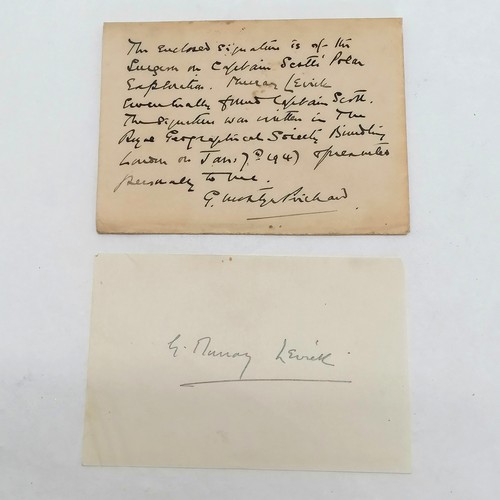 The enclosed signature is of the
Surgeon on Captain Scotts' Polar
Exploration. Murray Levick
eventually found Captain Scott.
The signature was written in The
Royal Geographical Society Building
London on Jan: 7th 1947 & presented
personally to me.
G. Prichard.
G. Murray Levick